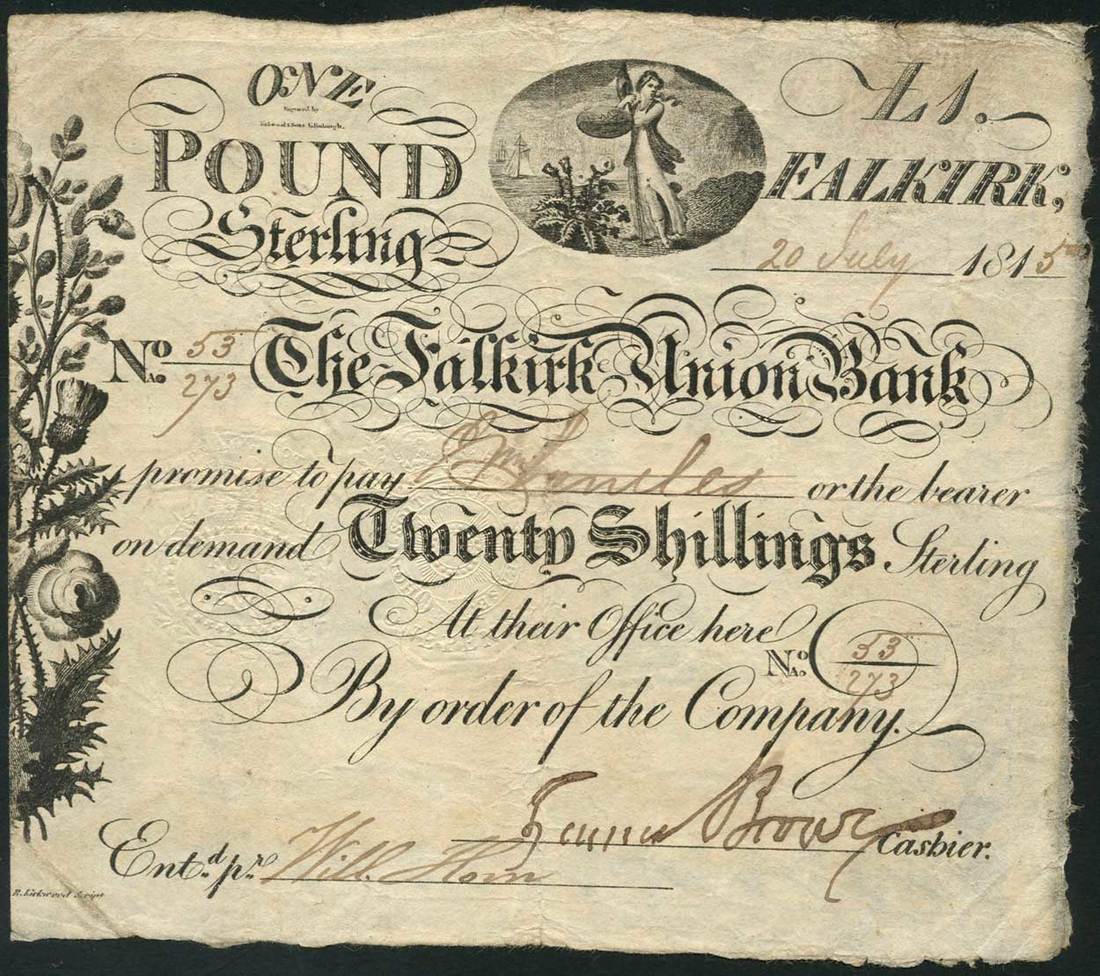 ONE
Engraved by
Kirkwood & Sons Edinburgh.
POUND
Sterling
£1.
FALKIRK,
20 July 1815
No. 53/273 The Falkirk Union Bank
promise to pay or the bearer
on demand Twenty Shillings Sterling
At their Office here
No. 53/273
By order of the Company.
Brown Cashier.
Entd. pr. Will. Horn
R. Kirkwood Script